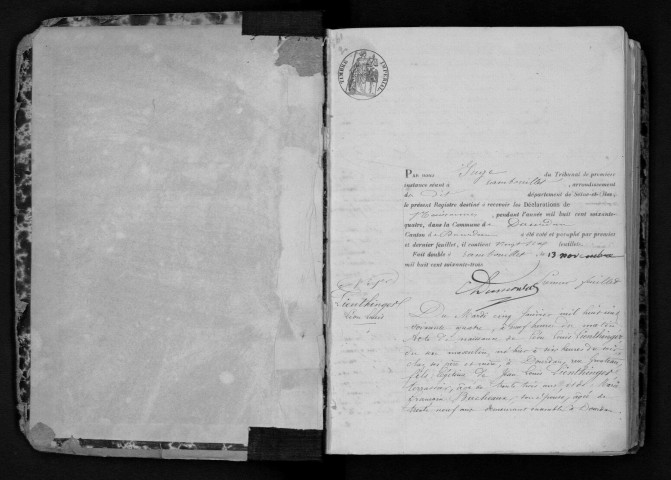 TIMBRE IMPÉRIAL
Par nous Juge du Tribunal de première
instance séant à Rambouillet, arrondissement
de Dit département de Seine-et-Oise,
le présent Registre destiné à recevoir les Déclarations de
Naissances, pendant l'année mil huit cent soixante-
quatre, dans la Commune de Dourdan
Canton de Dourdan a été coté et paraphé par premier
et dernier feuillet, il contient vingt-sept feuillets.
Fait double à Rambouillet, le 13 novembre
mil huit cent soixante-trois.
Premier feuillet
Lienthinger
Léon Louis
Du Mardi cinq Janvier mil huit cent
soixante quatre, à neuf heures du matin
Acte de naissance de Léon Louis Lienthinger
du sexe masculin, né hier à
chez ses père et mère, à Dourdan, rue
fils légitime de Jean Louis Lienthinger
terrassier, âgé de trente trois ans, et de Marie
Françoise son épouse, âgée de
trente neuf ans demeurant ensemble à Dourdan